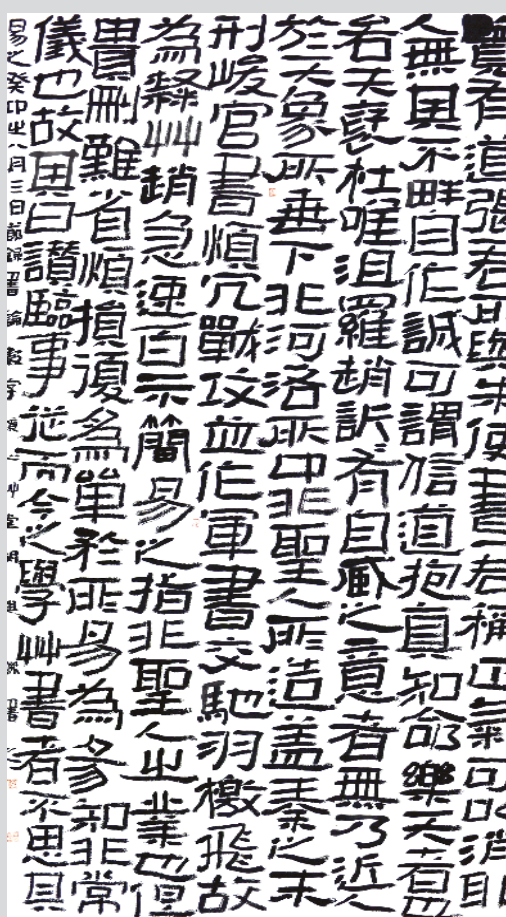 覽有道張君所與朱使書君稱正氣可以消耶
人無其不畔自作誠可謂信道抱真知命樂天者也
若夫褒杜唯沮羅趙訢有自臧之意者無乃近人
於天象所垂下非河洛所中非聖人所造盖秦之末
刑峻官書煩冗戰攻並作軍書交馳羽檄飛故
為隸艸趙急速百示簡易之指非聖人出業也但
貴刪難省煩損復為單於所易為易知非常
儀也故其曰讚臨事從而今之學艸書者不思其
易之癸卯之八月三日節錄書論數字